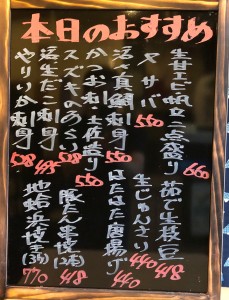 本日のおすすめ
生甘エビ帆立二点盛り 660
〆サバ 550
活〆真鯛刺身
かつお刺土佐造り 550
スズキのあらい 508
活生だこ刺身 495
やりいか刺身 508
茹で生枝豆 418
生じゅんさい 440
はたはた唐揚げ 440
豚たん串焼(2本) 418
地蛤浜焼き(3ケ) 770